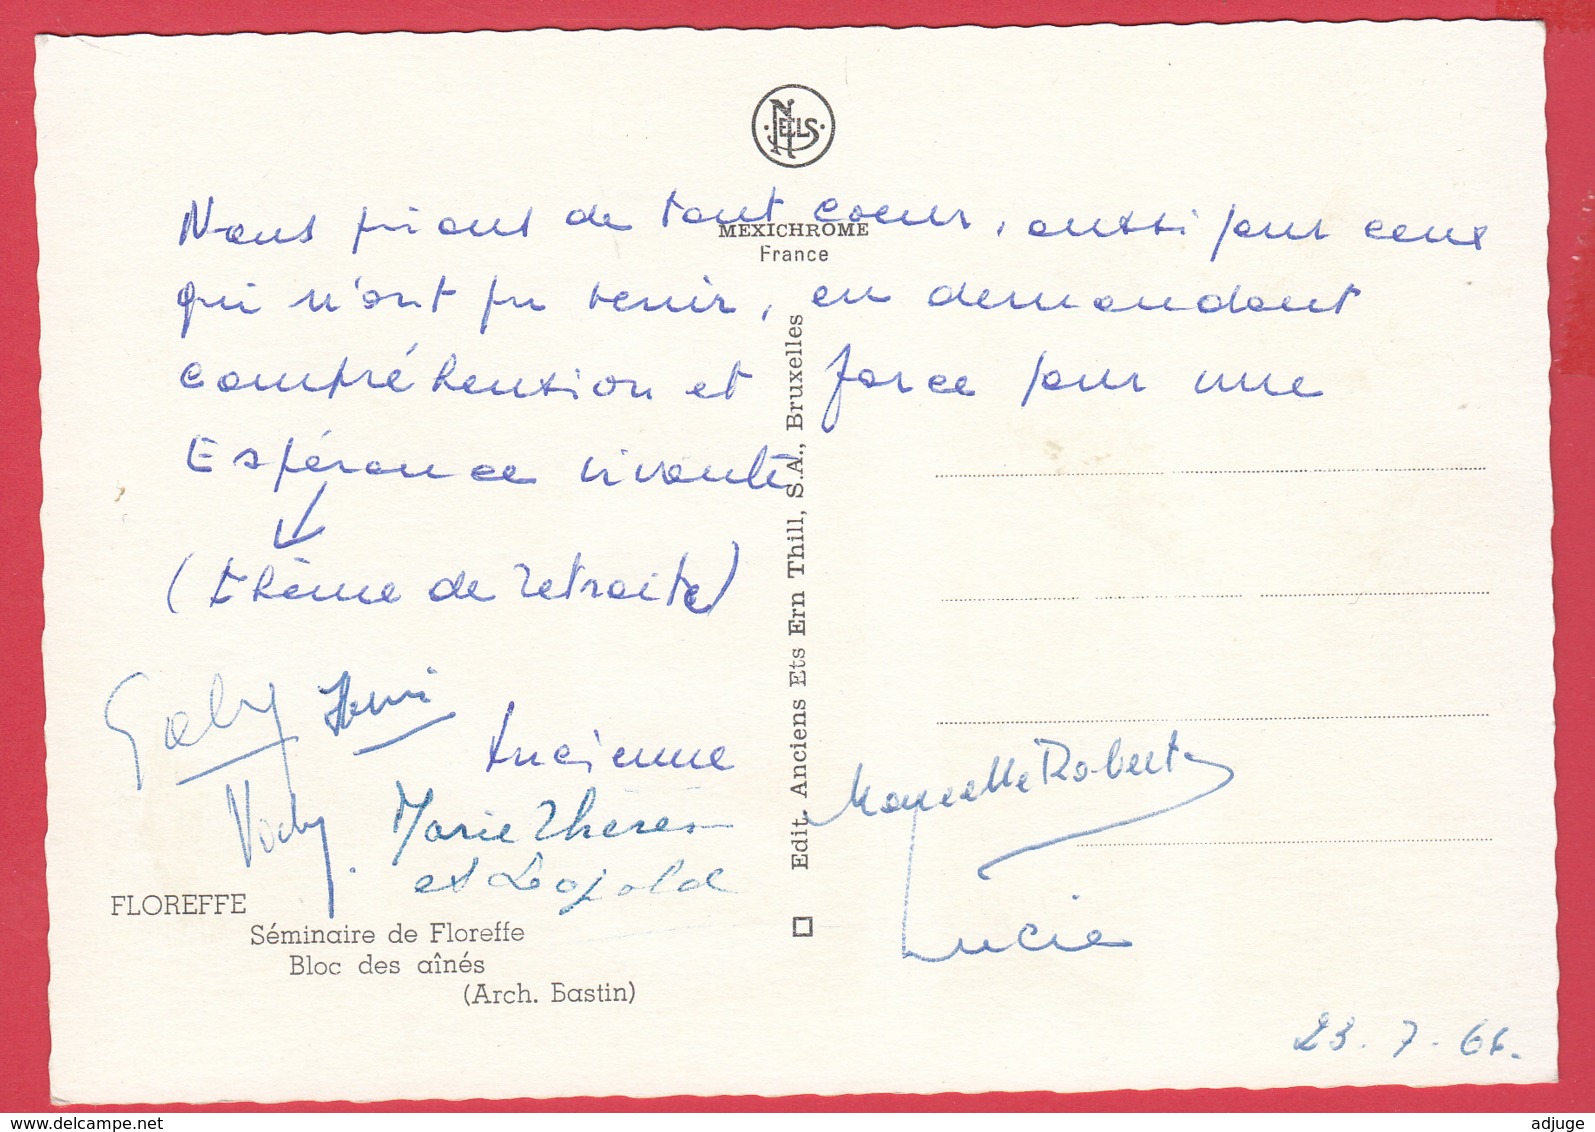 NELS
Nous prions de tout coeur, aussi pour ceux
MEXICHROME
France
qui n'ont pu venir, en demandant
compréhension et force pour une
Espérance vivante
(thème de retraite)
Edit. Anciens Ets Ern Thill, S.A., Bruxelles
Gaby Henri
Lucienne
Marcelle Robert
Marie Thérèse
et Léopold
Lucie
FLOREFFE
Séminaire de Floreffe
Bloc des aînés
(Arch. Bastin)
23.7.66.
www.delcampe.net
adjuge